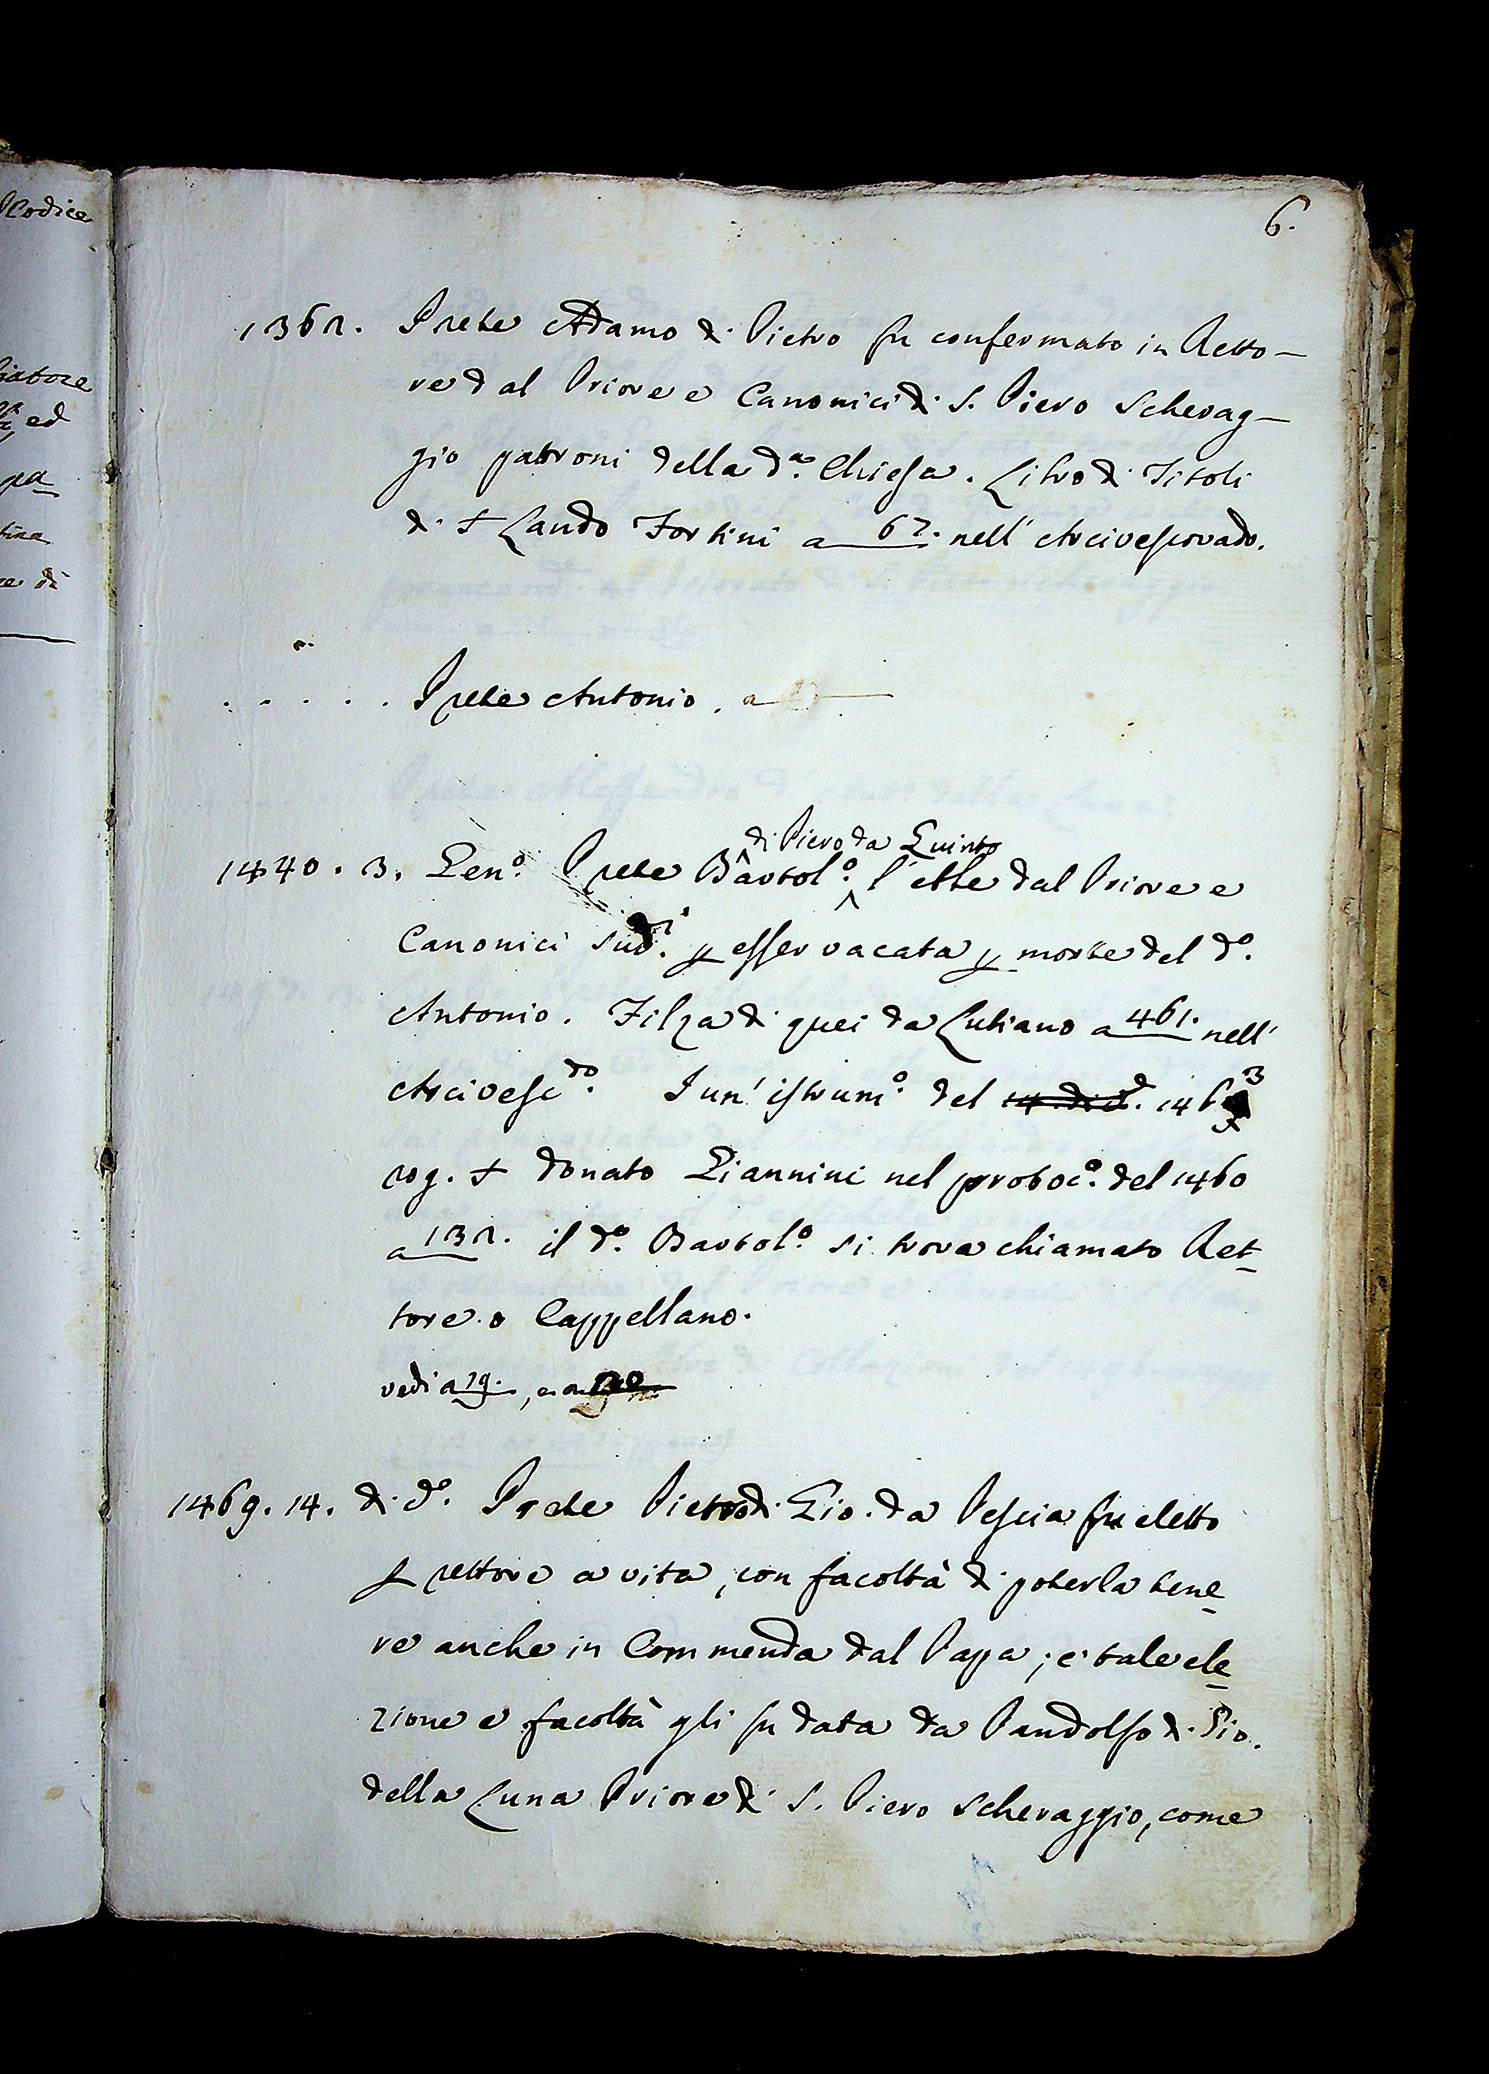 Codice
6.
iatore
ed
pa
tina
e di
1362. Prete Adamo di Pietro fu confermato in Retto-
re dal Priore e Canonici di S. Piero Scherag-
gio patroni della d.ª Chiesa. Libro di Titoli
di S. Lando Fortini a 67. nell' Arcivescovado.
. . . . . Prete Antonio. a
di Piero da Quinto
1440. 3. Gen.º Prete Bartol.º l'ebbe dal Priore e
Canonici sud.i p esser vacata p morte del d.º
Antonio. Filza di quei da Lutiano a 461. nell'
Arcivesc.do I un' istrum.º del 14. di d. 1463
rog. S. Donato Giannini nel protoc.º del 1460
a 132. il d.º Bartol.º si trova chiamato Ret-
tore o Cappellano.
vedi a 19., e a
1469. 14. di d.º Prete Pietro di Gio. da Pescia fu eletto
p rettore a vita, con facoltà di poterla tene-
re anche in Commenda dal Papa; e tale ele-
zione e facoltà gli fu data da Pandolfo di Gio.
della Luna Priore di S. Piero Scheraggio, come